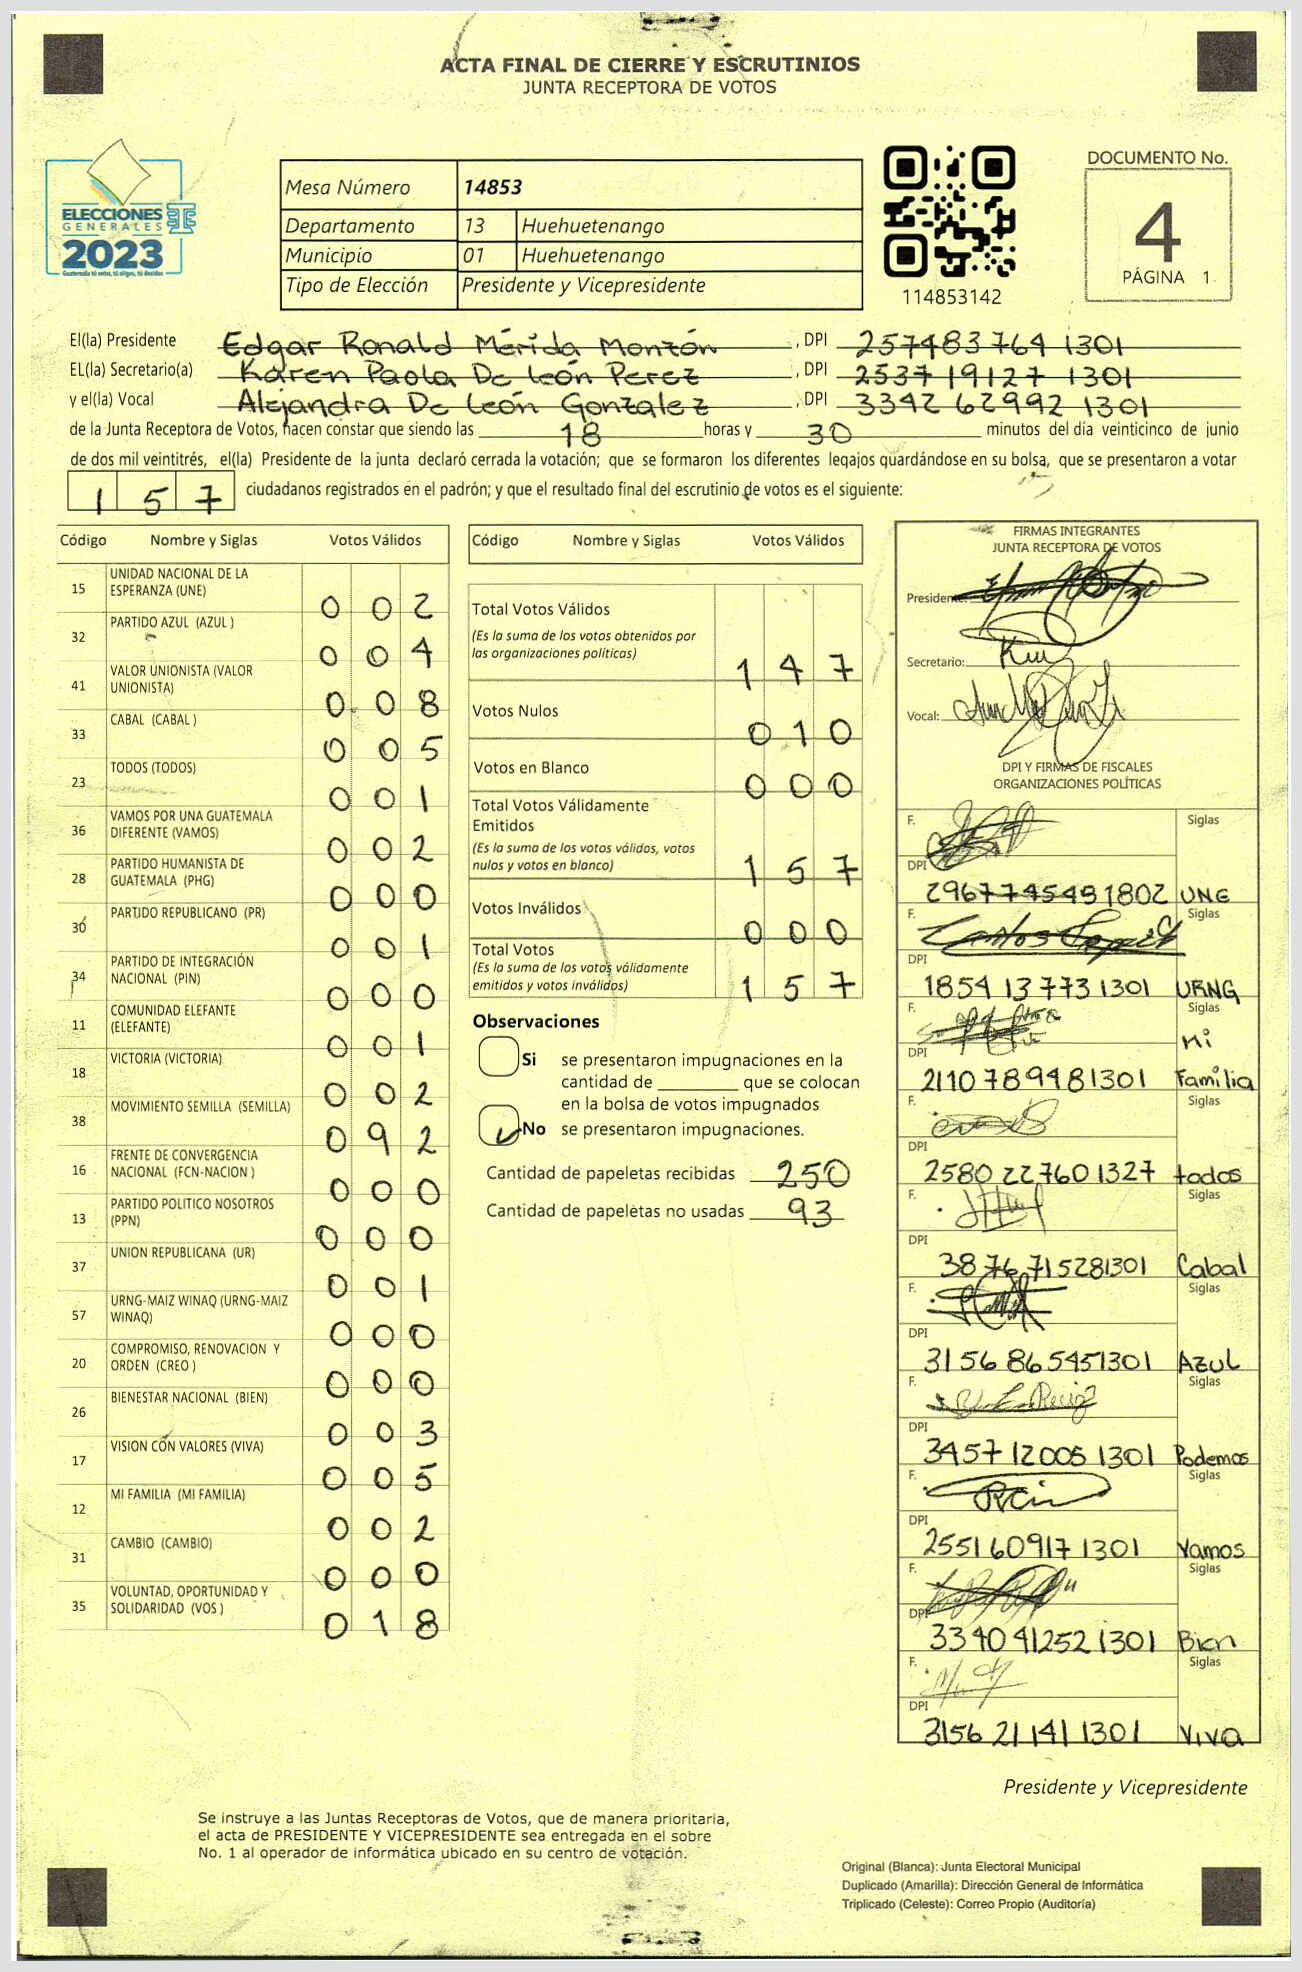 ACTA FINAL DE CIERRE Y ESCRUTINIOS
JUNTA RECEPTORA DE VOTOS
ELECCIONES
GENERALES
2023
Guatemala tú votas, tú eliges, tú decides
Mesa Número 14853
Departamento 13 Huehuetenango
Municipio 01 Huehuetenango
Tipo de Elección Presidente y Vicepresidente
114853142
DOCUMENTO No.
4
PÁGINA 1
El(la) Presidente Edgar Ronald Mérida Monzón , DPI 257483764 1301
EL(la) Secretario(a) Karen Paola De León Perez , DPI 2537 19127 1301
y el(la) Vocal Alejandra De León Gonzalez , DPI 3342 62992 1301
de la Junta Receptora de Votos, hacen constar que siendo las 18 horas y 30 minutos del día veinticinco de junio
de dos mil veintitrés, el(la) Presidente de la junta declaró cerrada la votación; que se formaron los diferentes legajos guardándose en su bolsa, que se presentaron a votar
157 ciudadanos registrados en el padrón; y que el resultado final del escrutinio de votos es el siguiente:
Código Nombre y Siglas Votos Válidos
15 UNIDAD NACIONAL DE LA
ESPERANZA (UNE) 002
32 PARTIDO AZUL (AZUL ) 004
41 VALOR UNIONISTA (VALOR
UNIONISTA) 008
33 CABAL (CABAL ) 005
23 TODOS (TODOS) 001
36 VAMOS POR UNA GUATEMALA
DIFERENTE (VAMOS) 002
28 PARTIDO HUMANISTA DE
GUATEMALA (PHG) 000
30 PARTIDO REPUBLICANO (PR) 001
34 PARTIDO DE INTEGRACIÓN
NACIONAL (PIN) 000
11 COMUNIDAD ELEFANTE
(ELEFANTE) 001
18 VICTORIA (VICTORIA) 002
38 MOVIMIENTO SEMILLA (SEMILLA) 092
16 FRENTE DE CONVERGENCIA
NACIONAL (FCN-NACION ) 000
13 PARTIDO POLITICO NOSOTROS
(PPN) 000
37 UNION REPUBLICANA (UR) 001
57 URNG-MAIZ WINAQ (URNG-MAIZ
WINAQ) 000
20 COMPROMISO, RENOVACION Y
ORDEN (CREO ) 000
26 BIENESTAR NACIONAL (BIEN) 003
17 VISION CON VALORES (VIVA) 005
12 MI FAMILIA (MI FAMILIA) 002
31 CAMBIO (CAMBIO) 000
35 VOLUNTAD, OPORTUNIDAD Y
SOLIDARIDAD (VOS ) 018
Código Nombre y Siglas Votos Válidos
Total Votos Válidos
(Es la suma de los votos obtenidos por
las organizaciones políticas) 147
Votos Nulos 010
Votos en Blanco 000
Total Votos Válidamente
Emitidos
(Es la suma de los votos válidos, votos
nulos y votos en blanco) 157
Votos Inválidos 000
Total Votos
(Es la suma de los votos válidamente
emitidos y votos inválidos) 157
Observaciones
Si se presentaron impugnaciones en la
cantidad de ________ que se colocan
en la bolsa de votos impugnados
No se presentaron impugnaciones.
Cantidad de papeletas recibidas 250
Cantidad de papeletas no usadas 93
FIRMAS INTEGRANTES
JUNTA RECEPTORA DE VOTOS
Presidente:
Secretario:
Vocal:
DPI Y FIRMAS DE FISCALES
ORGANIZACIONES POLÍTICAS
F. Siglas
DPI
2967745491802 UNE
F. Siglas
DPI
1854 13773 1301 URNG
F. Siglas
Mi
DPI
2110789481301 Familia
F. Siglas
DPI
2580 22760 1327 todos
F. Siglas
DPI
3876 715281301 Cabal
F. Siglas
DPI
3156 865451301 AZUL
F. Siglas
DPI
3457 12005 1301 Podemos
F. Siglas
DPI
2551 60917 1301 Vamos
F. Siglas
DPI
3340 41252 1301 Bien
F. Siglas
DPI
3156 21141 1301 VIVA
Presidente y Vicepresidente
Se instruye a las Juntas Receptoras de Votos, que de manera prioritaria,
el acta de PRESIDENTE Y VICEPRESIDENTE sea entregada en el sobre
No. 1 al operador de informática ubicado en su centro de votación.
Original (Blanca): Junta Electoral Municipal
Duplicado (Amarilla): Dirección General de Informática
Triplicado (Celeste): Correo Propio (Auditoría)